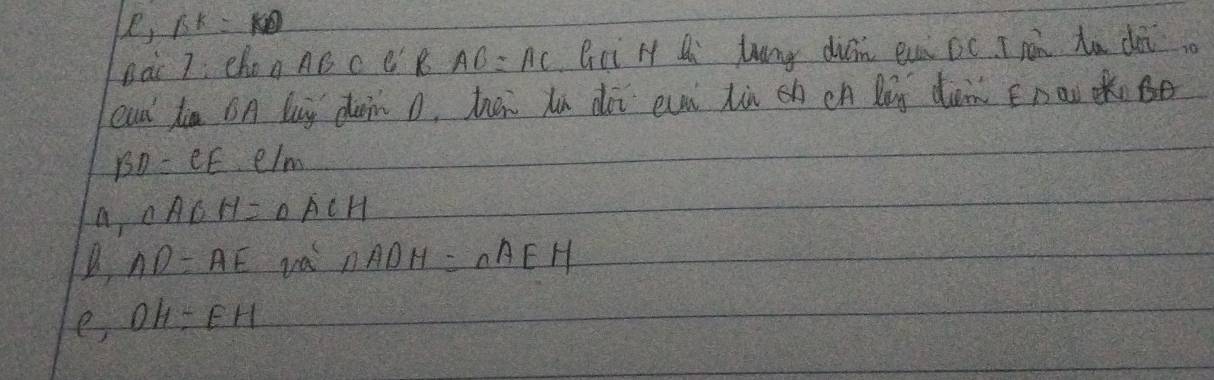 c, BK = KD
Bài 7: Cho △ ABC có AB = AC. Gọi H là trung điểm của BC. Trên tia đối
của tia BA lấy điểm D, trên tia đối của tia CA lấy điểm E sao cho
BD = CE. c/m
a, △ABH = △ACH
b, AD = AE và △ADH = △AEH
c, DH = EH